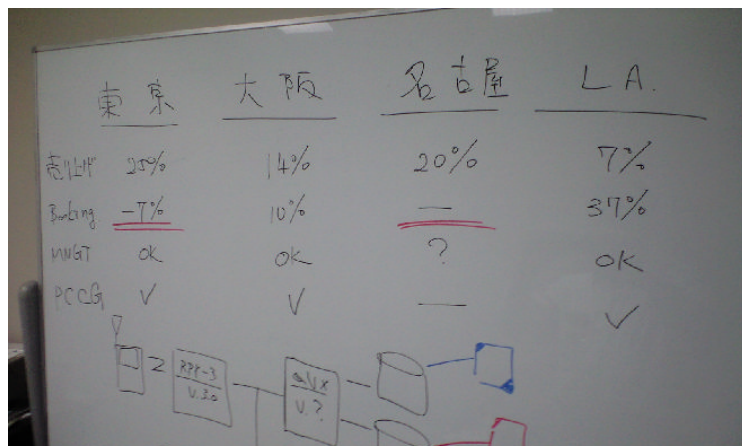 東京 大阪 名古屋 L A.
売り上げ 25% 14% 20% 7%
Banking -7% 10% — 37%
MNGT OK OK ? OK
PCCG ✓ ✓ — ✓
V.3.0
V.?